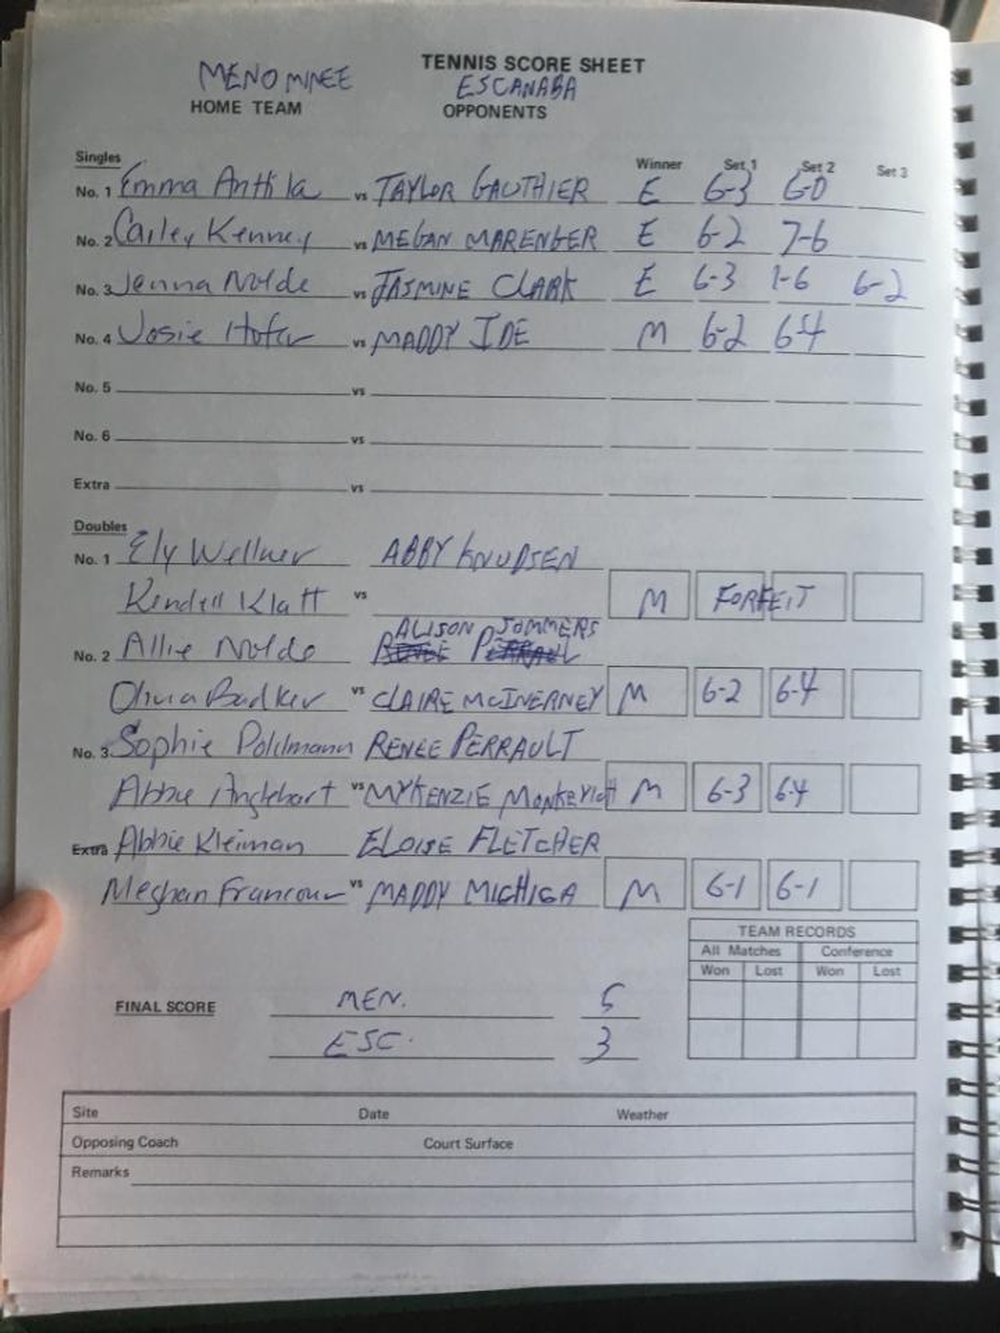 TENNIS SCORE SHEET
MENOMINEE ESCANABA
HOME TEAM OPPONENTS
Singles Winner Set 1 Set 2 Set 3
No. 1 Emma Anttila vs TAYLOR GAUTHIER E 6-3 6-0
No. 2 Cailey Kenney vs MEGAN MARENGER E 6-2 7-6
No. 3 Jenna Nolde vs JASMINE CLARK E 6-3 1-6 6-2
No. 4 Josie Hofer vs MADDY IDE M 6-2 6-4
No. 5 vs
No. 6 vs
Extra vs
Doubles
No. 1 Ely Wellner ABBY KNUDSEN
Kendell Klatt vs M FORFEIT
ALISON SOMMERS
No. 2 Allie Nolde
Olivia Badker vs CLAIRE MCINERNEY M 6-2 6-4
No. 3 Sophie Pohlmann RENEE PERRAULT
Abbie Anglehart vs MYKENZIE M 6-3 6-4
Extra Abbie Kleiman ELOISE FLETCHER
Meghan Francour vs MADDY MICHIGA M 6-1 6-1
TEAM RECORDS
All Matches Conference
Won Lost Won Lost
FINAL SCORE MEN. 5
ESC. 3
Site Date Weather
Opposing Coach Court Surface
Remarks